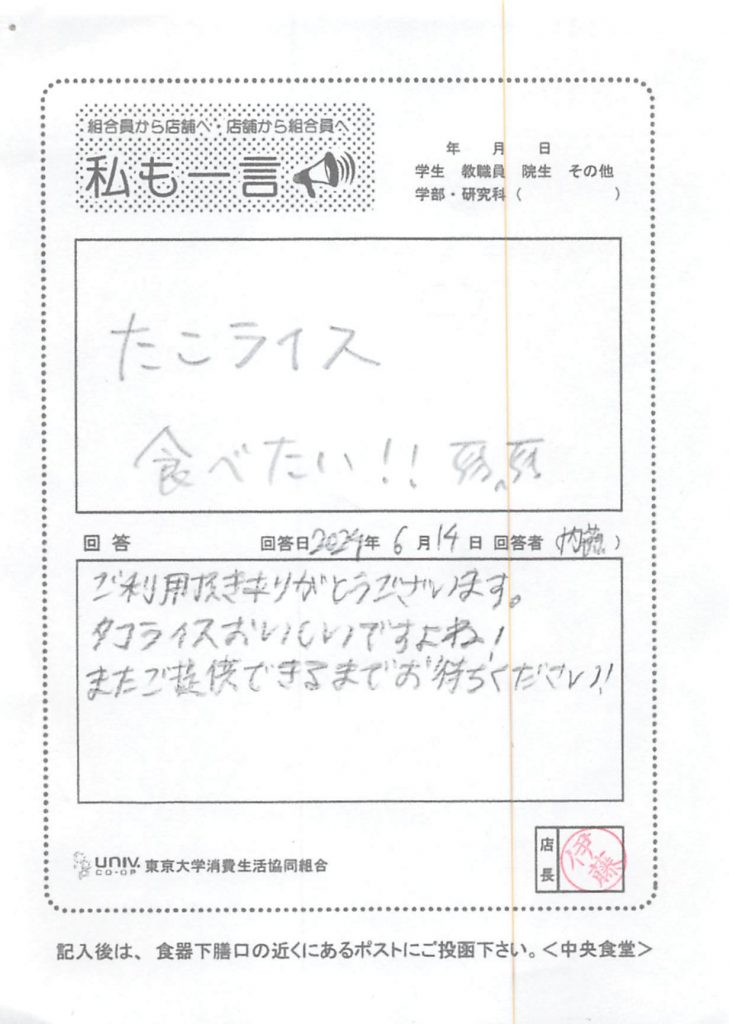 組合員から店舗へ・店舗から組合員へ
私も一言
年 月 日
学生 教職員 院生 その他
学部・研究科( )
たこライス
食べたい!!
回答 回答日2024年6月14日 回答者 内藤)
ご利用頂き有りがとうございます。
タコライスおいしいですよね!
またご提供できるまでお待ちください!
UNIV. CO-OP 東京大学消費生活協同組合
店長 伊藤
記入後は、食器下膳口の近くにあるポストにご投函下さい。<中央食堂>